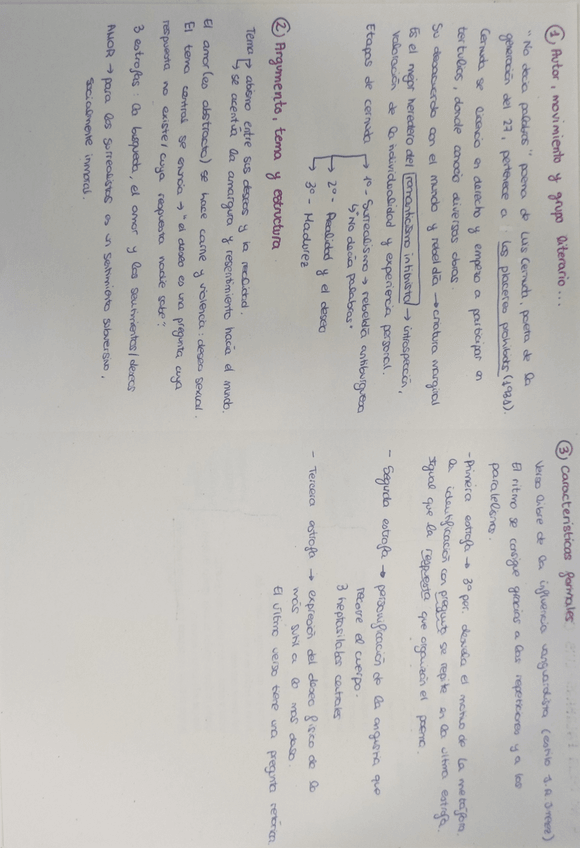 ① Autor, movimiento y grupo literario...
"No decía palabras" poema de Luis Cernuda, poeta de la
generación del 27, pertenece a: Los placeres prohibidos (1931).
Cernuda se licenció en derecho y empezó a participar en
tertulias, donde conoció diversas obras.
Su desacuerdo con el mundo y rebeldía → criatura marginal
Es el mejor heredero del romanticismo intimista → introspección,
valoración de la individualidad y experiencia personal.
Etapas de Cernuda → 1º- Surrealismo → rebeldía antiburguesa
↳ "No decía palabras"
→ 2º- Realidad y el deseo
→ 3º- Madurez
② Argumento, tema y estructura
Tema → abismo entre sus deseos y la realidad.
↳ se acentúa la amargura y resentimiento hacia el mundo.
El amor (es abstracto) se hace carne y violencia: deseo sexual.
El tema central se enuncia → "el deseo es una pregunta cuya
respuesta no existe / cuya respuesta nadie sabe".
3 estrofas: la búsqueda, el amor y los sentimientos/deseos
AMOR → para los surrealistas es un sentimiento subversivo,
socialmente inmoral.
③ Características formales
Verso libre de la influencia vanguardista (estilo
El ritmo se consigue gracias a las repeticiones y a los
paralelismos.
- Primera estrofa → 3º per. desvela el motivo de la metáfora
la identificación con pregunta se repite en la última estrofa,
igual que la respuesta que organizan el poema.
- Segunda estrofa → personificación de la angustia que
recorre el cuerpo.
3 heptasílabos centrales
- Tercera estrofa → expresión del deseo físico de lo
más sutil a lo más
El último verso tiene una pregunta retórica